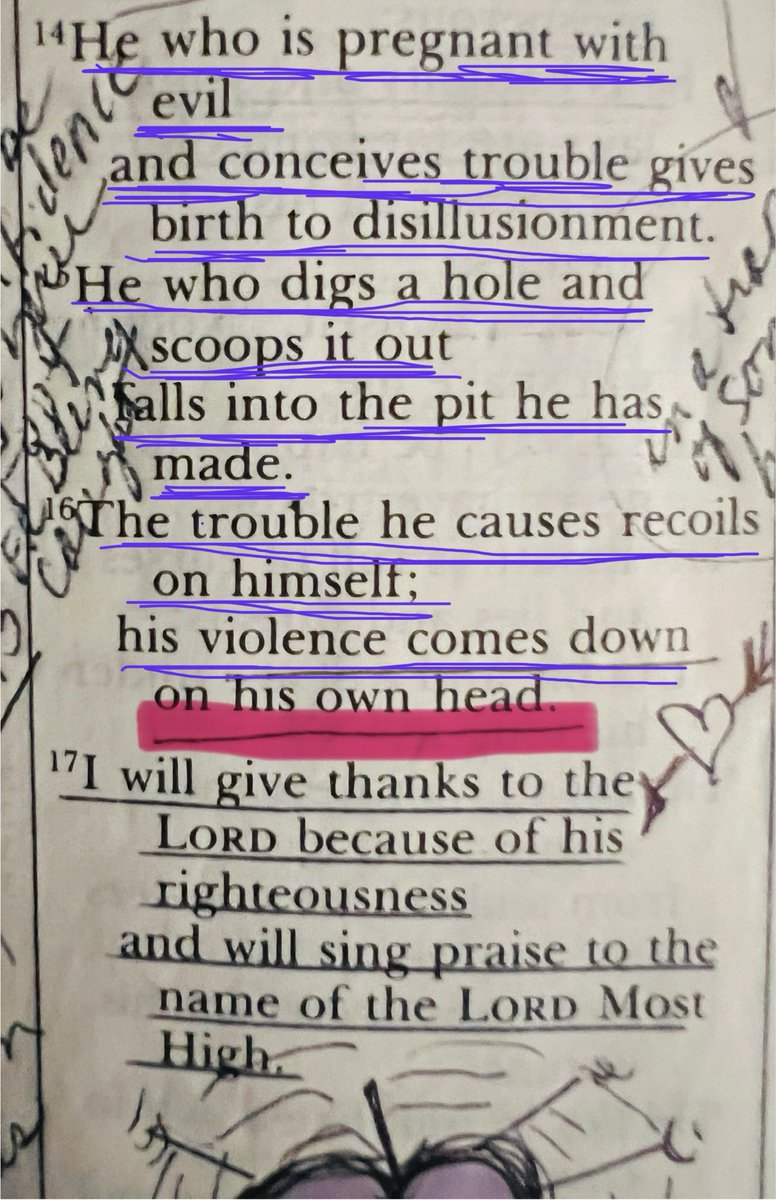 14He who is pregnant with
evil
and conceives trouble gives
birth to disillusionment.
He who digs a hole and
scoops it out
falls into the pit he has
made.
16The trouble he causes recoils
on himself;
his violence comes down
on his own head.
17I will give thanks to the
LORD because of his
righteousness
and will sing praise to the
name of the LORD Most
High.